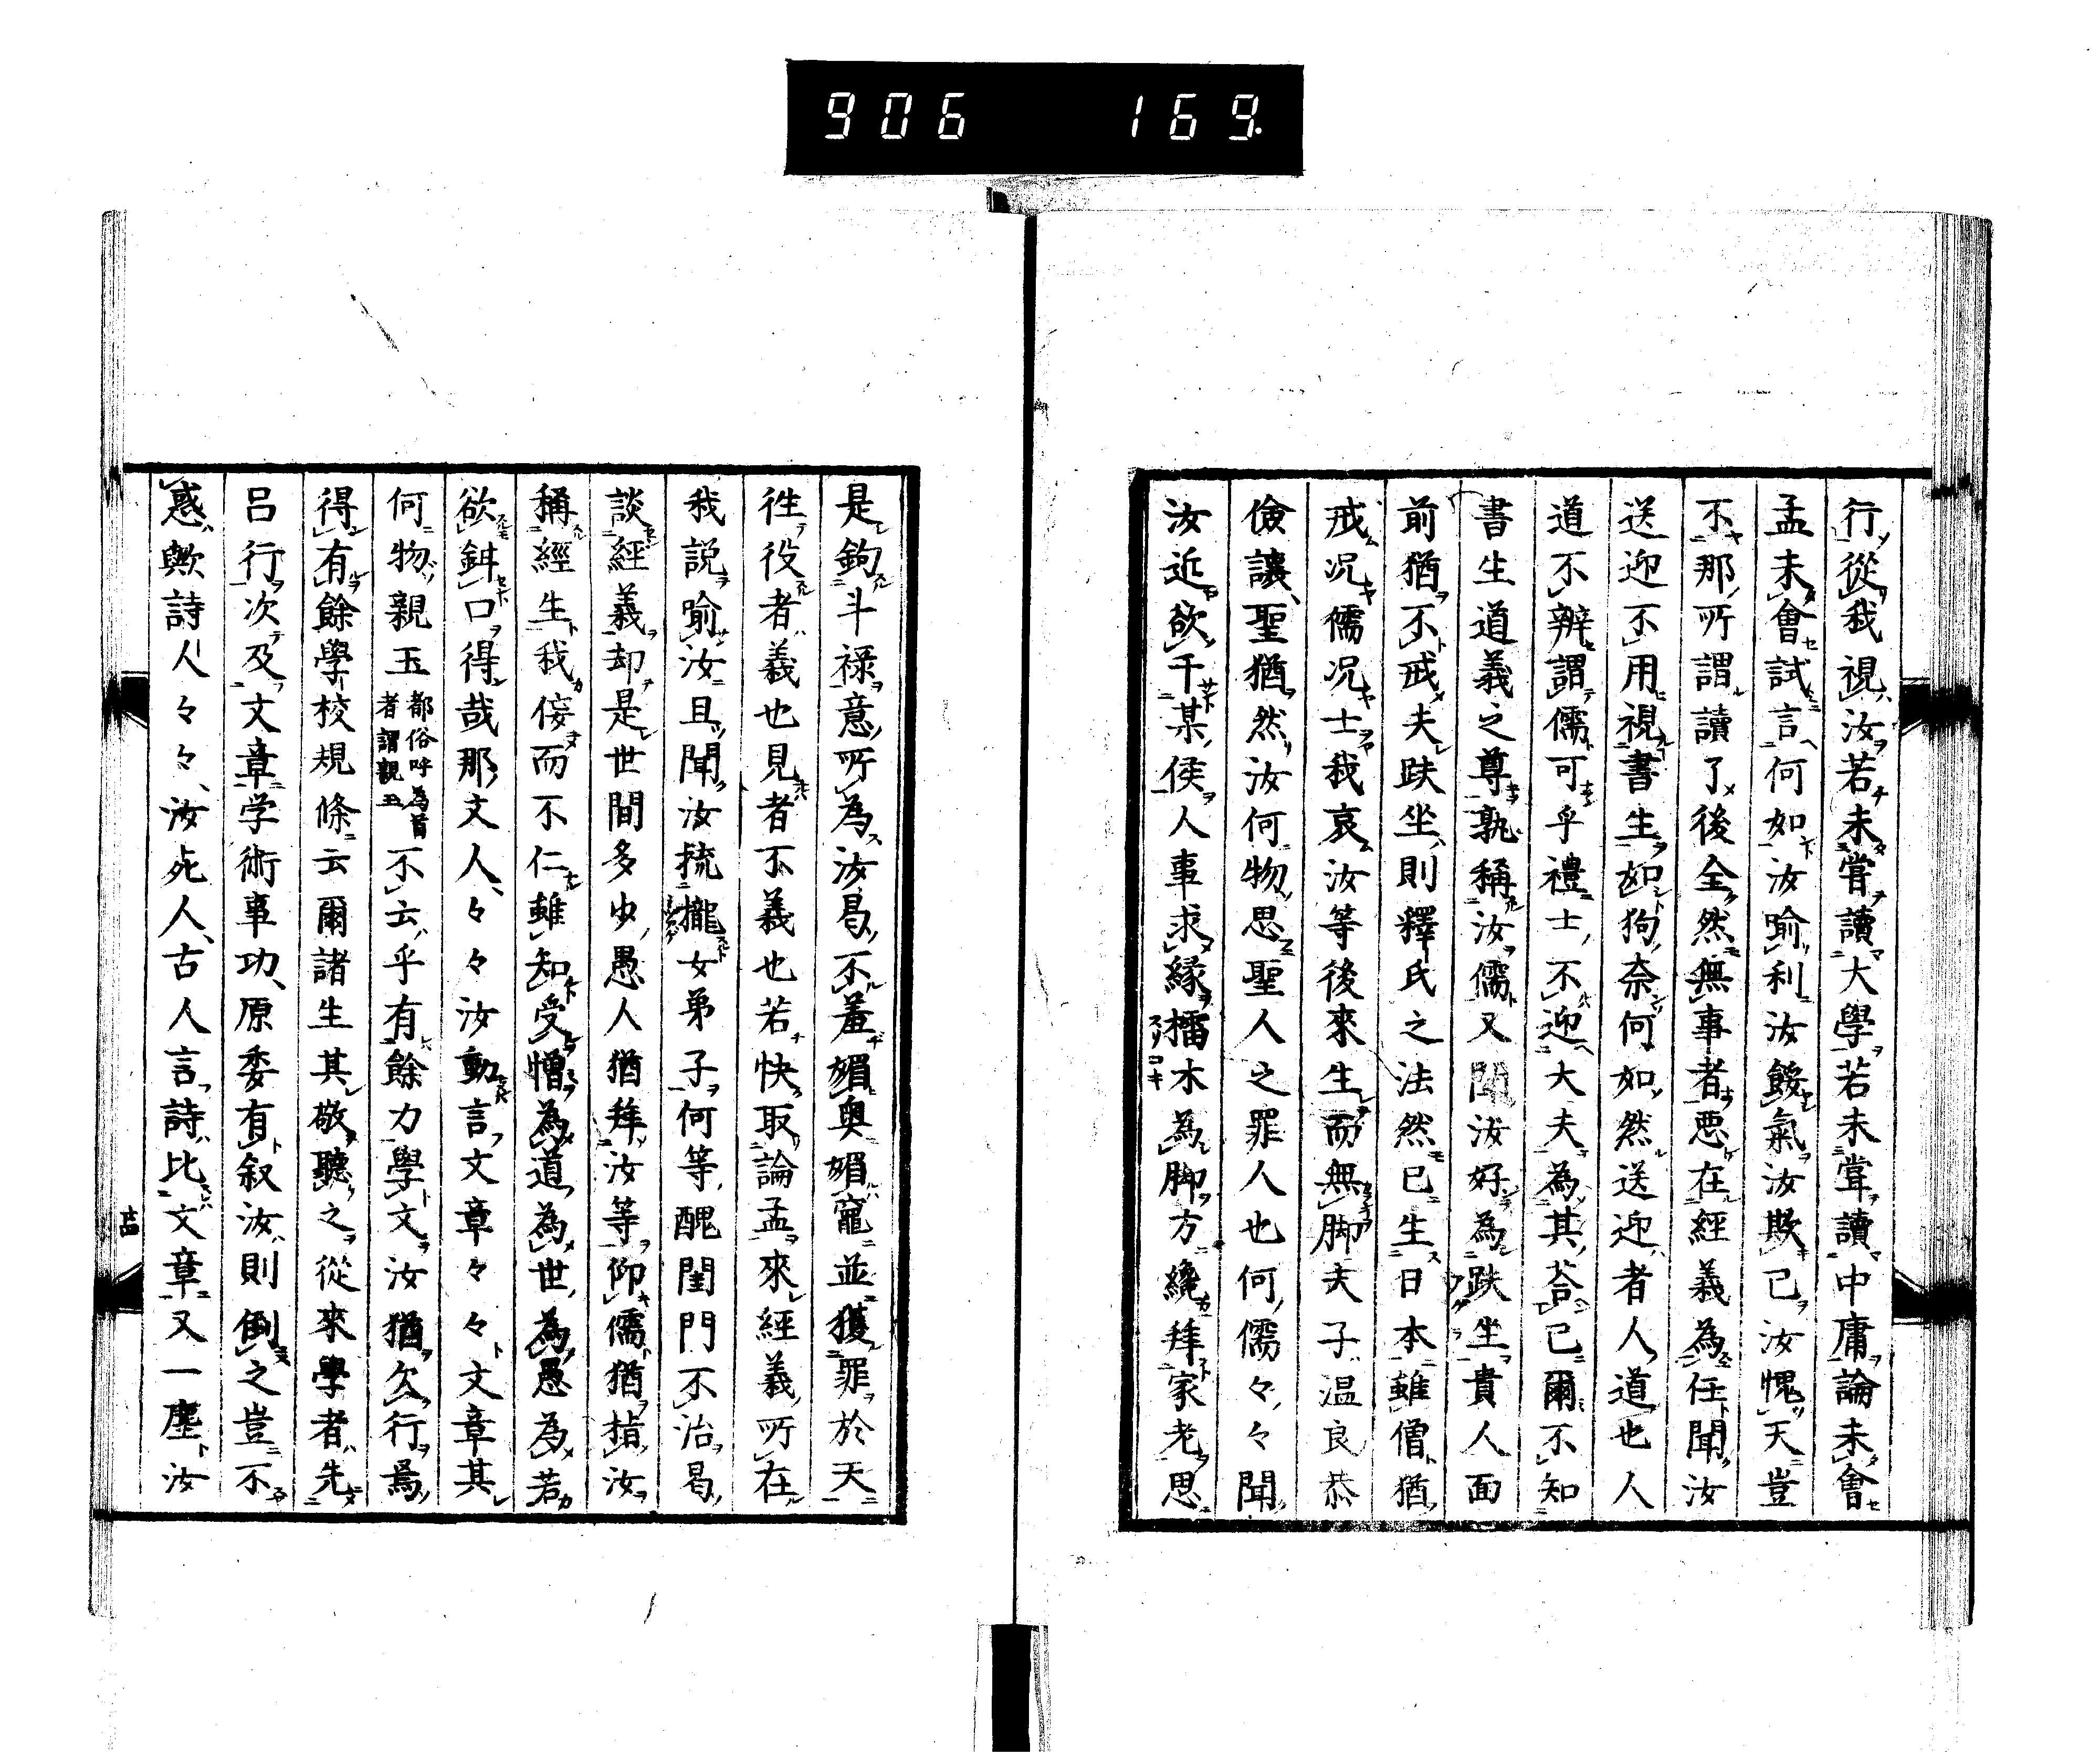 906 169.
行從我視汝若未嘗讀大學若未嘗讀中庸論未會
孟未會試言何如汝喻利汝餒氣汝欺已汝愧天豈
不那所謂讀了後全然無事者惡在經義為任聞汝
送迎不用視書生如狗奈何如然送迎者人道也人
道不辨謂儒可乎禮士不迎大夫為其荅已爾不知
書生道義之尊孰稱汝儒又聞汝好為趺坐貴人面
前猶不戒夫趺坐則釋氏之法然已生日本雖僧猶
戒况儒况士我哀汝等後來生而無脚夫子温良恭
儉讓聖猶然汝何物思聖人之罪人也何儒々々聞
汝近欲干某侯人事求緣擂木為脚方纔拜家老思
スリコキ
是鉤斗祿意所為汝曷不羞媚奥媚竈並獲罪於天
徃役者義也見者不義也若快取論孟來經義所在
我説喻汝且聞汝梳櫳女弟子何等醜閨門不治曷
談經義却是世間多少愚人猶拜汝等仰儒猶指汝
稱經生我侫而不仁雖知受憎為道為世為愚為若
欲鉗口得哉那文人々々汝動言文章々々文章其
何物親玉
都俗呼為首
者謂親玉
不云乎有餘力學文汝猶欠行焉
得有餘學校規條云爾諸生其敬聽之從來學者先
呂行次及文章学術事功原委有叙汝則倒之豈不
惑歟詩人々々汝死人古人言詩比文章又一塵汝
十四